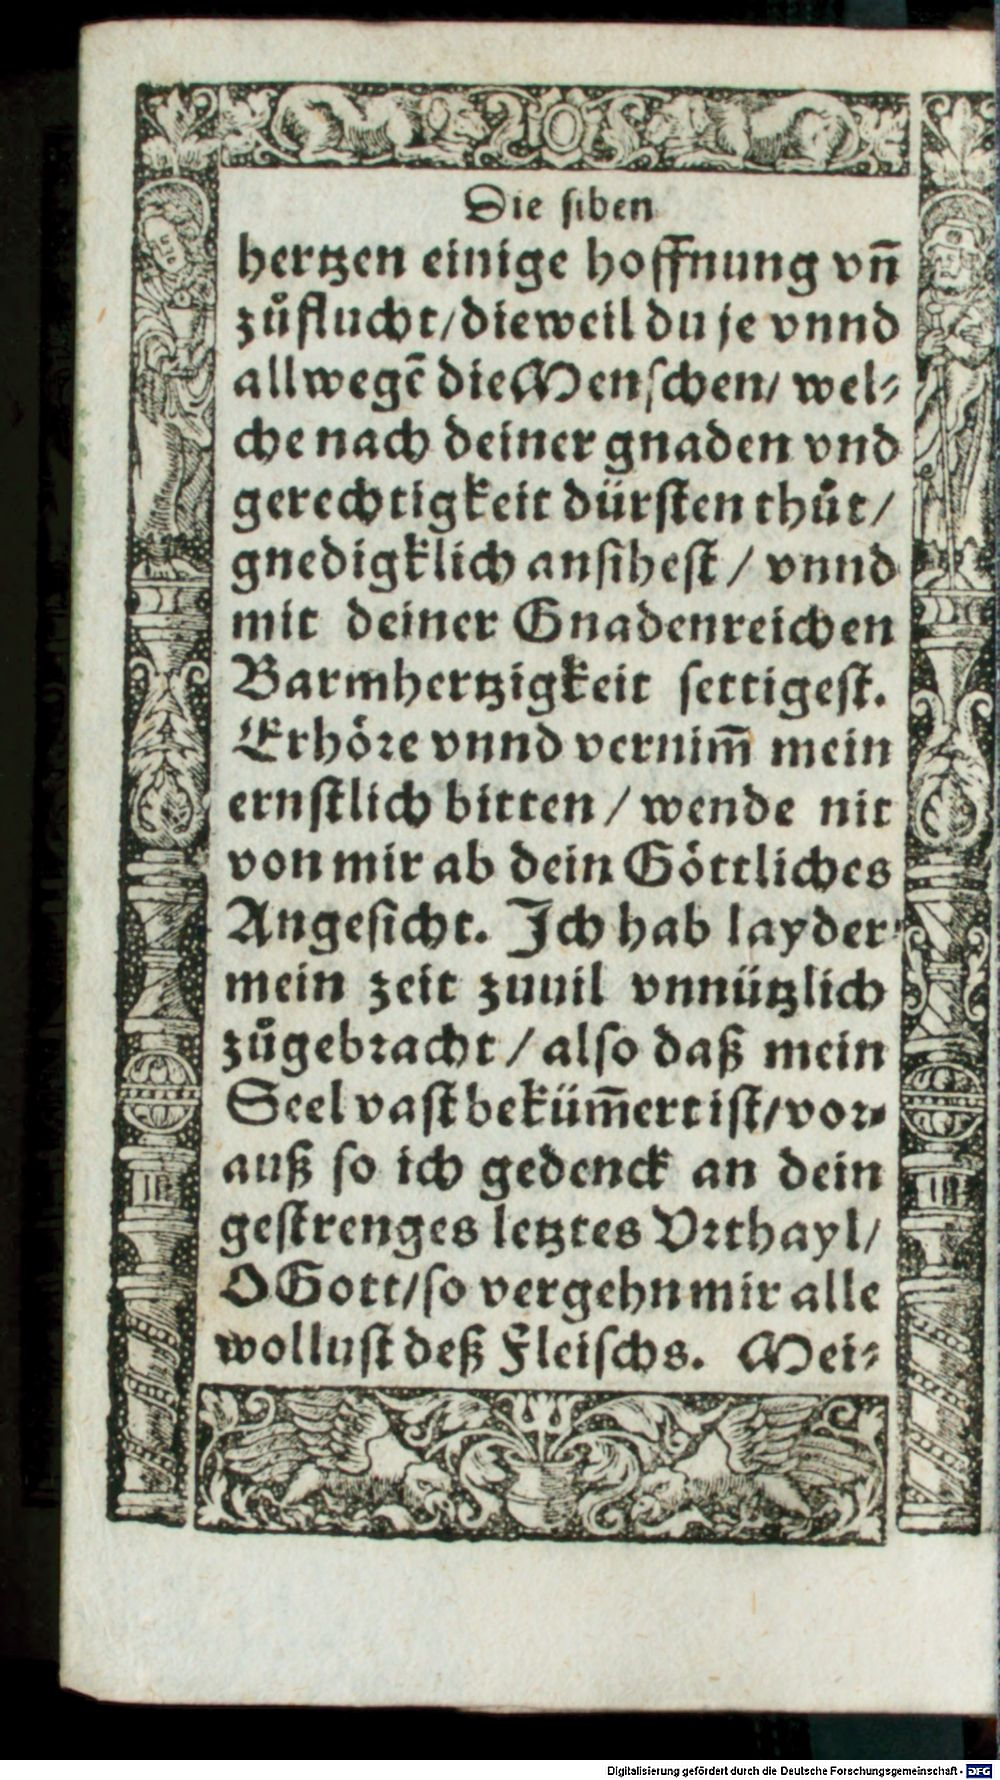 Die siben
hertzen einige hoffnung vñ
zůflucht/dieweil du je vnnd
allwegē die Menschen/ wel-
che nach deiner gnaden vnd
gerechtigkeit dürsten thůt/
gnedigklich ansihest / vnnd
mit deiner Gnadenreichen
Barmhertzigkeit settigest.
Erhöre vnnd vernim̃ mein
ernstlich bitten / wende nit
von mir ab dein Göttliches
Angesicht. Ich hab layder
mein zeit zuuil vnnützlich
zůgebracht / also daß mein
Seel vast beküm̃ert ist/vor-
auß so ich gedenck an dein
gestrenges letztes Vrthayl/
O Gott/so vergehn mir alle
wollust deß Fleischs. Mei-
Digitalisierung gefördert durch die Deutsche Forschungsgemeinschaft - DFG